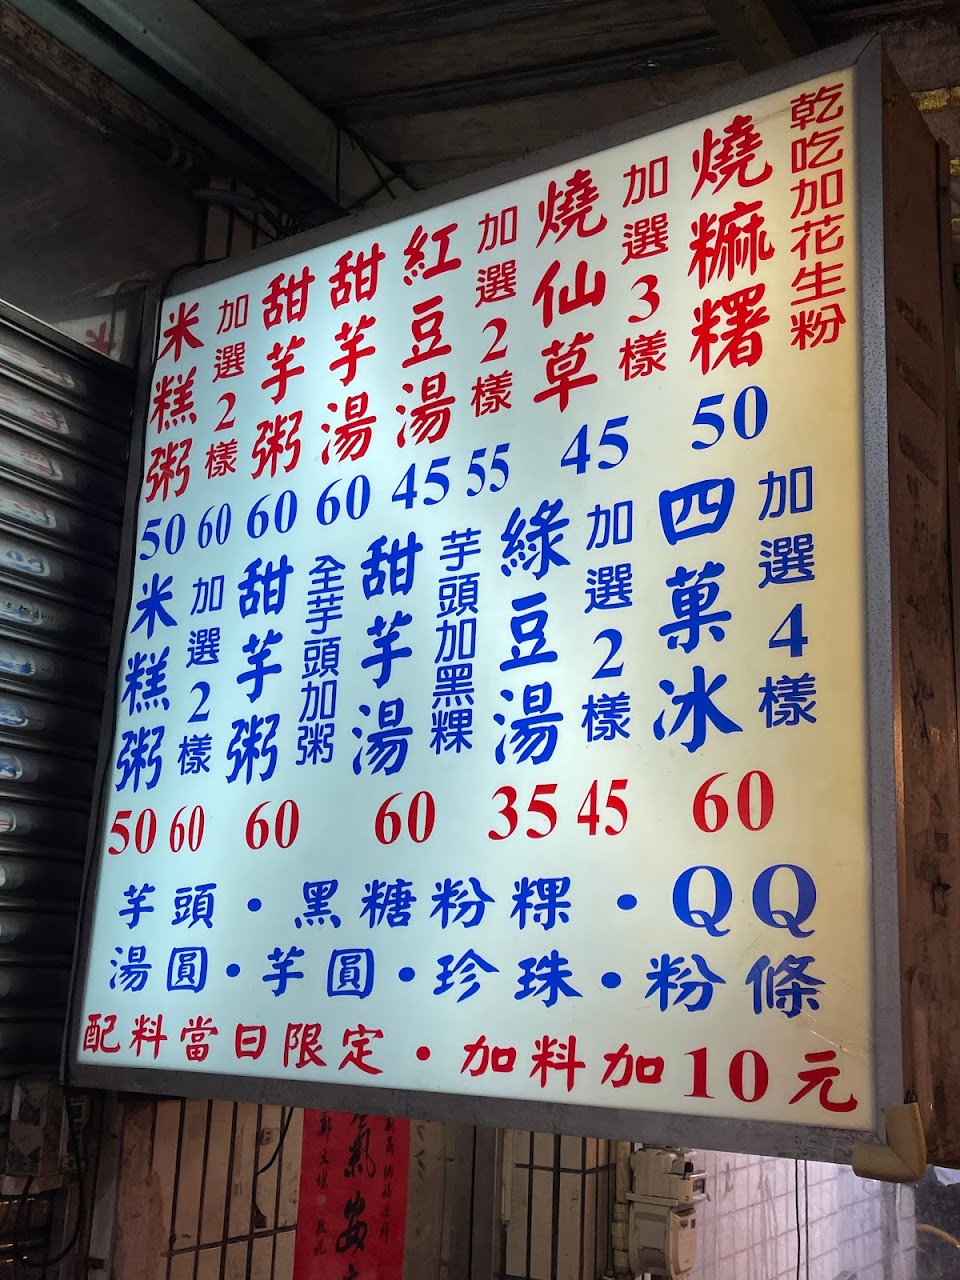 乾吃加花生粉
燒麻糬
50
加選3樣
燒仙草
45
加選2樣
紅豆湯
45 55
甜芋湯
60
甜芋粥
60
加選2樣
米糕粥
50 60
加選4樣
四菓冰
60
加選2樣
綠豆湯
35 45
芋頭加黑粿
甜芋湯
60
全芋頭加粥
甜芋粥
60
加選2樣
米糕粥
50 60
芋頭・黑糖粉粿・QQ
湯圓・芋圓・珍珠・粉條
配料當日限定・加料加10元